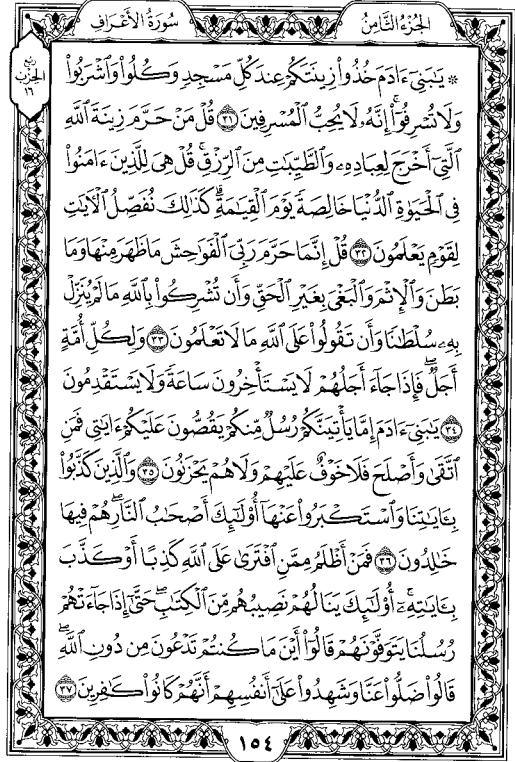 الجُزْءُ الثَّامِنُ
سُورَةُ الأَعْرَافِ
رُبْعُ
الحِزْبِ
١٦
* يَٰبَنِيٓ ءَادَمَ خُذُواْ زِينَتَكُمْ عِندَ كُلِّ مَسْجِدٍ وَكُلُواْ وَٱشْرَبُواْ
وَلَا تُسْرِفُوٓاْۚ إِنَّهُۥ لَا يُحِبُّ ٱلْمُسْرِفِينَ ٣١ قُلْ مَنْ حَرَّمَ زِينَةَ ٱللَّهِ
ٱلَّتِيٓ أَخْرَجَ لِعِبَادِهِۦ وَٱلطَّيِّبَٰتِ مِنَ ٱلرِّزْقِۚ قُلْ هِيَ لِلَّذِينَ ءَامَنُواْ
فِي ٱلْحَيَوٰةِ ٱلدُّنْيَا خَالِصَةً يَوْمَ ٱلْقِيَٰمَةِۗ كَذَٰلِكَ نُفَصِّلُ ٱلْأٓيَٰتِ
لِقَوْمٍ يَعْلَمُونَ ٣٢ قُلْ إِنَّمَا حَرَّمَ رَبِّيَ ٱلْفَوَٰحِشَ مَا ظَهَرَ مِنْهَا وَمَا
بَطَنَ وَٱلْإِثْمَ وَٱلْبَغْيَ بِغَيْرِ ٱلْحَقِّ وَأَن تُشْرِكُواْ بِٱللَّهِ مَا لَمْ يُنَزِّلْ
بِهِۦ سُلْطَٰنًا وَأَن تَقُولُواْ عَلَى ٱللَّهِ مَا لَا تَعْلَمُونَ ٣٣ وَلِكُلِّ أُمَّةٍ
أَجَلٌۖ فَإِذَا جَآءَ أَجَلُهُمْ لَا يَسْتَأْخِرُونَ سَاعَةً وَلَا يَسْتَقْدِمُونَ
٣٤ يَٰبَنِيٓ ءَادَمَ إِمَّا يَأْتِيَنَّكُمْ رُسُلٌ مِّنكُمْ يَقُصُّونَ عَلَيْكُمْ ءَايَٰتِي فَمَنِ
ٱتَّقَىٰ وَأَصْلَحَ فَلَا خَوْفٌ عَلَيْهِمْ وَلَا هُمْ يَحْزَنُونَ ٣٥ وَٱلَّذِينَ كَذَّبُواْ
بِـَٔايَٰتِنَا وَٱسْتَكْبَرُواْ عَنْهَآ أُوْلَٰٓئِكَ أَصْحَٰبُ ٱلنَّارِۖ هُمْ فِيهَا
خَٰلِدُونَ ٣٦ فَمَنْ أَظْلَمُ مِمَّنِ ٱفْتَرَىٰ عَلَى ٱللَّهِ كَذِبًا أَوْ كَذَّبَ
بِـَٔايَٰتِهِۦٓۚ أُوْلَٰٓئِكَ يَنَالُهُمْ نَصِيبُهُم مِّنَ ٱلْكِتَٰبِۖ حَتَّىٰٓ إِذَا جَآءَتْهُمْ
رُسُلُنَا يَتَوَفَّوْنَهُمْ قَالُوٓاْ أَيْنَ مَا كُنتُمْ تَدْعُونَ مِن دُونِ ٱللَّهِۖ
قَالُواْ ضَلُّواْ عَنَّا وَشَهِدُواْ عَلَىٰٓ أَنفُسِهِمْ أَنَّهُمْ كَانُواْ كَٰفِرِينَ ٣٧
١٥٤